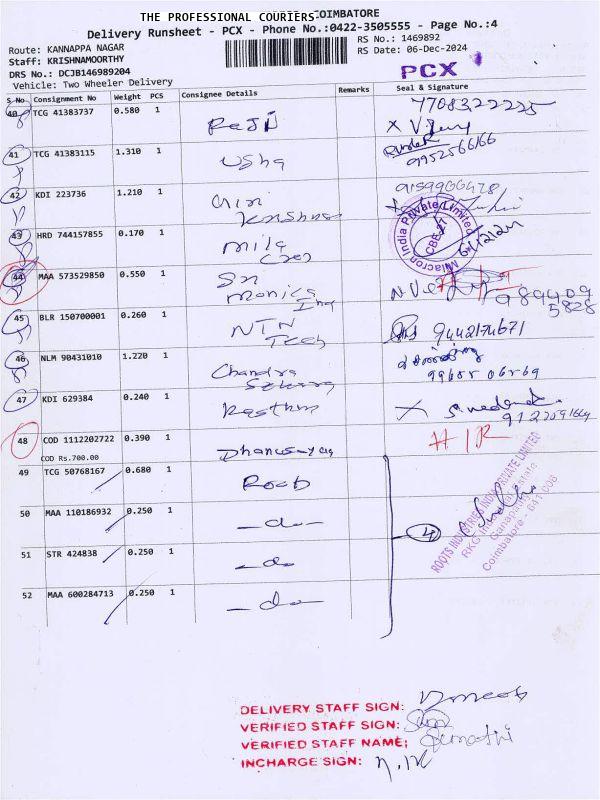 THE PROFESSIONAL COURIERS. COIMBATORE
Delivery Runsheet - PCX - Phone No.:0422-3505555 - Page No.:4
Route: KANNAPPA NAGAR
RS No.: 1469892
Staff: KRISHNAMOORTHY
RS Date: 06-Dec-2024
DRS No.: DCJB146989204
PCX
Vehicle: Two Wheeler Delivery
S No Consignment No Weight PCS Consignee Details Remarks Seal & Signature
40 TCG 41383737 0.580 1 7708322225
41 TCG 41383115 1.310 1 Usha 9952566166
42 KDI 223736 1.210 1 Giri Krishna
43 HRD 744157855 0.170 1 Mila
Milacron India Private Limited CBE-27
44 MAA 573529850 0.550 1 Sri Monica 989409 5828
45 BLR 150700001 0.260 1 NTN Tech 9442174671
46 NLM 90431010 1.220 1 Chandra Sekara
47 KDI 629384 0.240 1 Kasthuri
48 COD 1112202722 0.390 1
COD Rs.700.00
49 TCG 50768167 0.680 1 Roots
50 MAA 110186932 0.250 1 -do-
51 STR 424838 0.250 1 -do-
52 MAA 600284713 0.250 1 -do-
4
ROOTS INDUSTRIES INDIA PRIVATE LIMITED
Coimbatore - 641 006
DELIVERY STAFF SIGN:
VERIFIED STAFF SIGN:
VERIFIED STAFF NAME: Sumathi
INCHARGE SIGN: